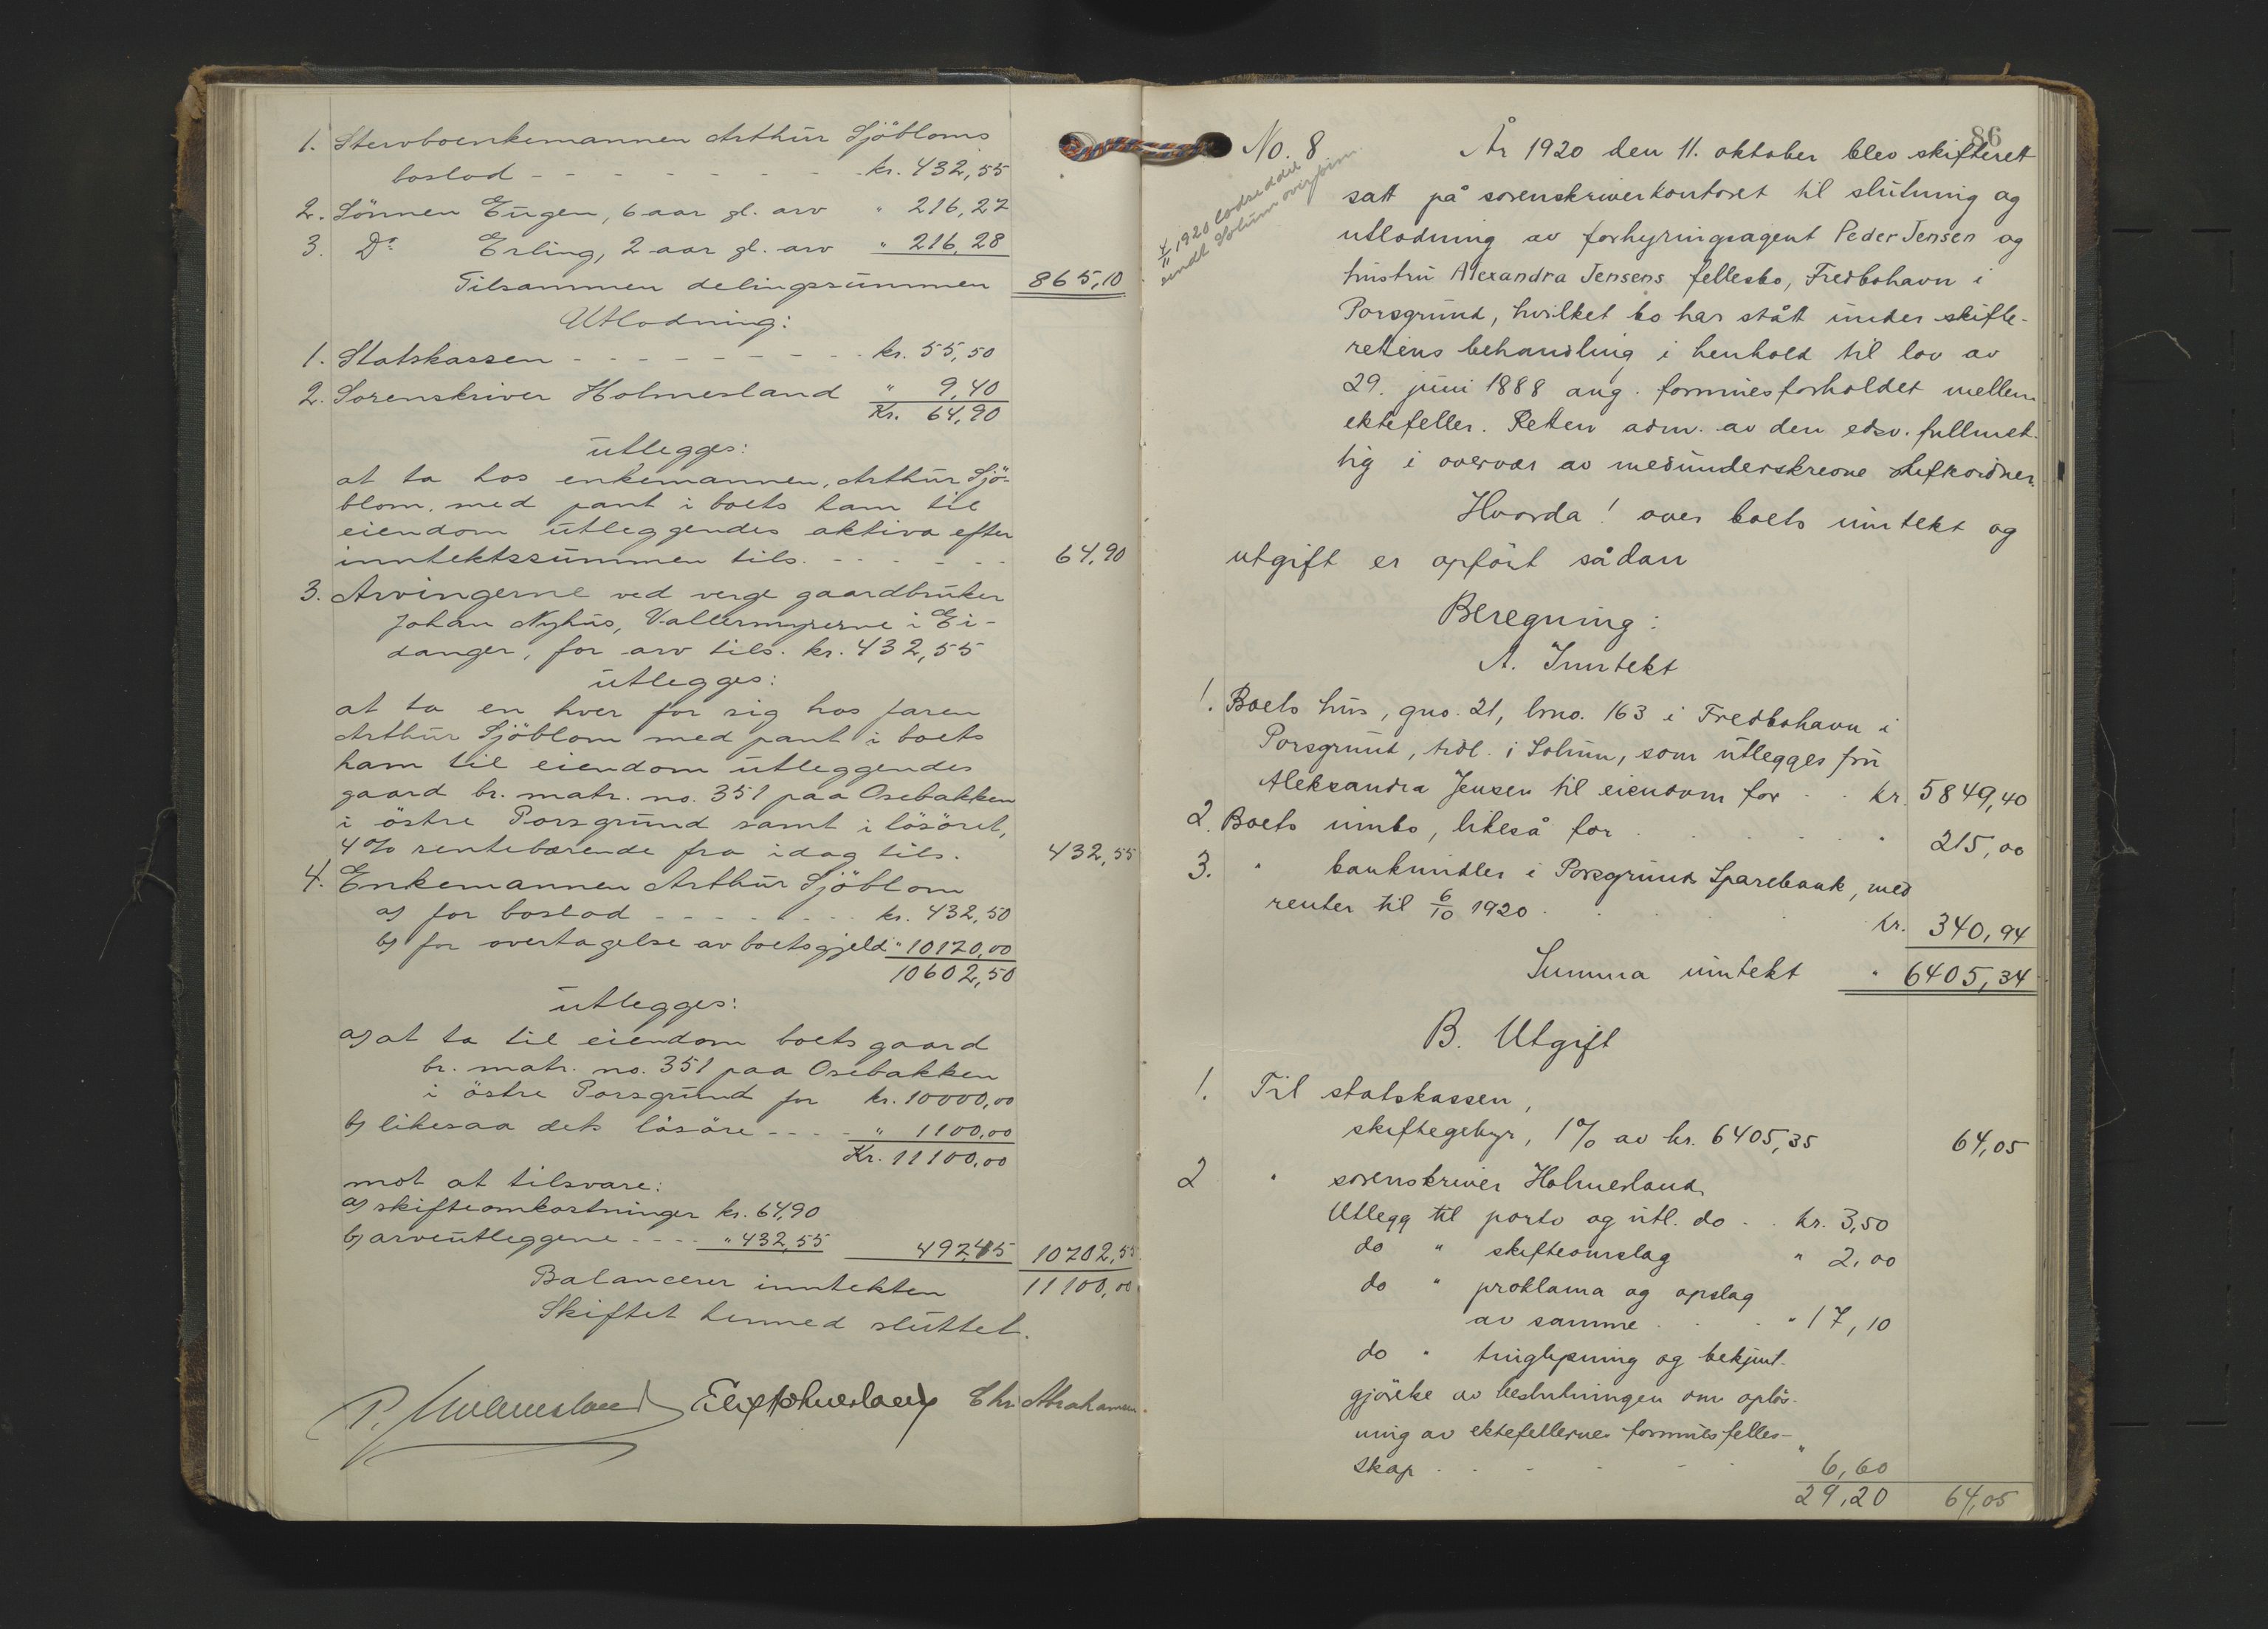 1. Stervboenkemannen Arthur Sjöbloms
boslod - - - - - - - - kr. 432,55
2. Sönnen Eugen, 6 aar gl. arv " 216,27
3. Do Erling, 2 aar gl. arv " 216,28
Tilsammen delingssummen 865,10
Utlodning:
1. Statskassen - - - - - - - - kr. 55,50
2. Sorenskriver Holmesland " 9,40
Kr. 64,90
utlegges:
at ta hos enkemannen, Arthur Sjö-
blom, med pant i boets ham til
eiendom utleggendes aktiva efter
inntektssummen tils. - - - - - - 64,90
3. Arvingerne ved verge gaardbruker
Johan Nyhus, Vallermyrerne i Ei-
danger, for arv tils. kr. 432,55
utlegges:
at ta en hver for sig hos faren
Arthur Sjöblom med pant i boets
ham til eiendom utleggendes
gaard br. matr. no. 351 paa Osebakken
i östre Porsgrund samt i lösöret,
4% rentebærende fra idag tils. 432,55
4. Enkemannen Arthur Sjöblom
a) for boslod - - - - - - - kr. 432,50
b) for overtagelse av boets gjeld " 10170,00
10602,50
utlegges:
a) at ta til eiendom boets gaard
br. matr. no. 351 paa Osebakken
i östre Porsgrund for kr. 10000,00
b) likesaa dets lösöre - - - - " 1100,00
Kr. 11100,00
mot at tilsvare:
a) skifteomkostninger kr. 64,90
b) arveutleggene - - - - " 432,55 497,45 10702,55
Balancerer inntekten 11100,00
Skiftet hermed sluttet.
P. Holmesland Holmesland Chr. Abrahamsen
86
No. 8
4/11 1920 lodseddel
sendt Solum
År 1920 den 11. oktober blev skifterett
satt på sorenskriverkontoret til slutning og
utlodning av forhyringsagent Peder Jensen og
hustru Alexandra Jensens fellesbo, Fredbohavn i
Porsgrund, hvilket bo har stått under skifte-
rettens behandling i henhold til lov av
29. juni 1888 ang. formuesforholdet mellem
ektefeller. Retten adm. av den edsv. fullmek-
tig i overvær av medunderskrevne
Hvorda! over boets inntekt og
utgift er opført sådan
Beregning:
A. Inntekt
1. Boets hus, gno. 21, brno. 163 i Fredbohavn i
Porsgrund, tidl. i Solum, som utlegges fru
Aleksandra Jensen til eiendom for . . kr. 5849,40
2. Boets innbo, likeså for . . . . . . " 215,00
3. " bankmidler i Porsgrunds Sparebank, med
renter til 6/10 1920 . . . . . kr. 340,94
Summa inntekt " 6405,34
B. Utgift
1. Til statskassen,
skiftegebyr, 1% av kr. 6405,35 64,05
2 " sorenskriver Holmesland
Utlegg til porto og utl. do . . kr. 3,50
do " skifteomslag " 2,00
do " proklama og opslag
av samme . . . " 17,10
do " tinglysning og bekjent-
gjörelse av beslutningen om opløs-
ning av ektefellernes formuesfelles-
skap . . . . . " 6,60
29,20 64,05